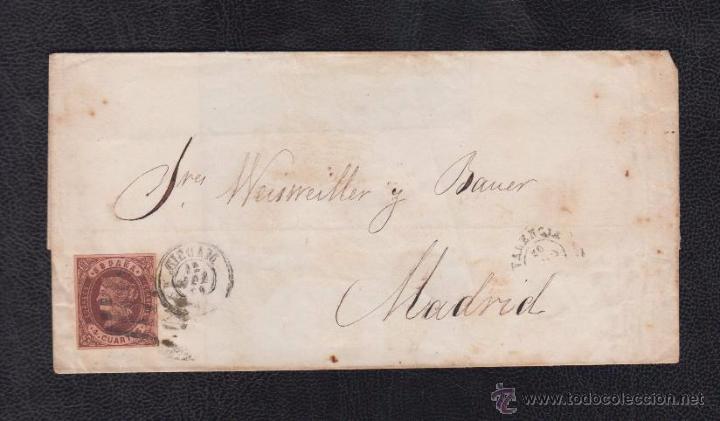 Sres Weisweiller y Bauer
Madrid
ESPAÑA
4 CUARTOS
VALENCIA
www.todocoleccion.net